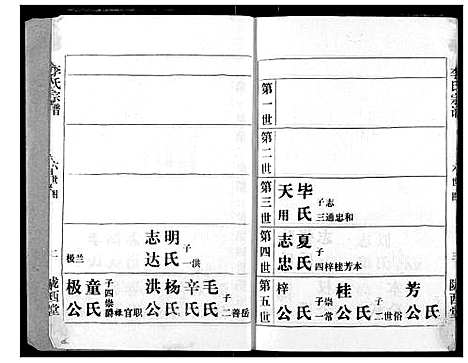 李氏宗谱
陇西堂
第一世
第二世
第三世
天用
毕氏
子
志
三通忠和
第四世
志忠
夏氏
子
四梓桂芳本
第五世
梓公
氏
子崇
一常
桂公
氏
子世
二 俗
芳公
氏
李氏宗谱
陇西堂
志达
明氏
子
一洪
极兰
洪公
杨氏
辛氏
毛氏
子
二善岳
极公
童氏
子崇
四爵禄官职